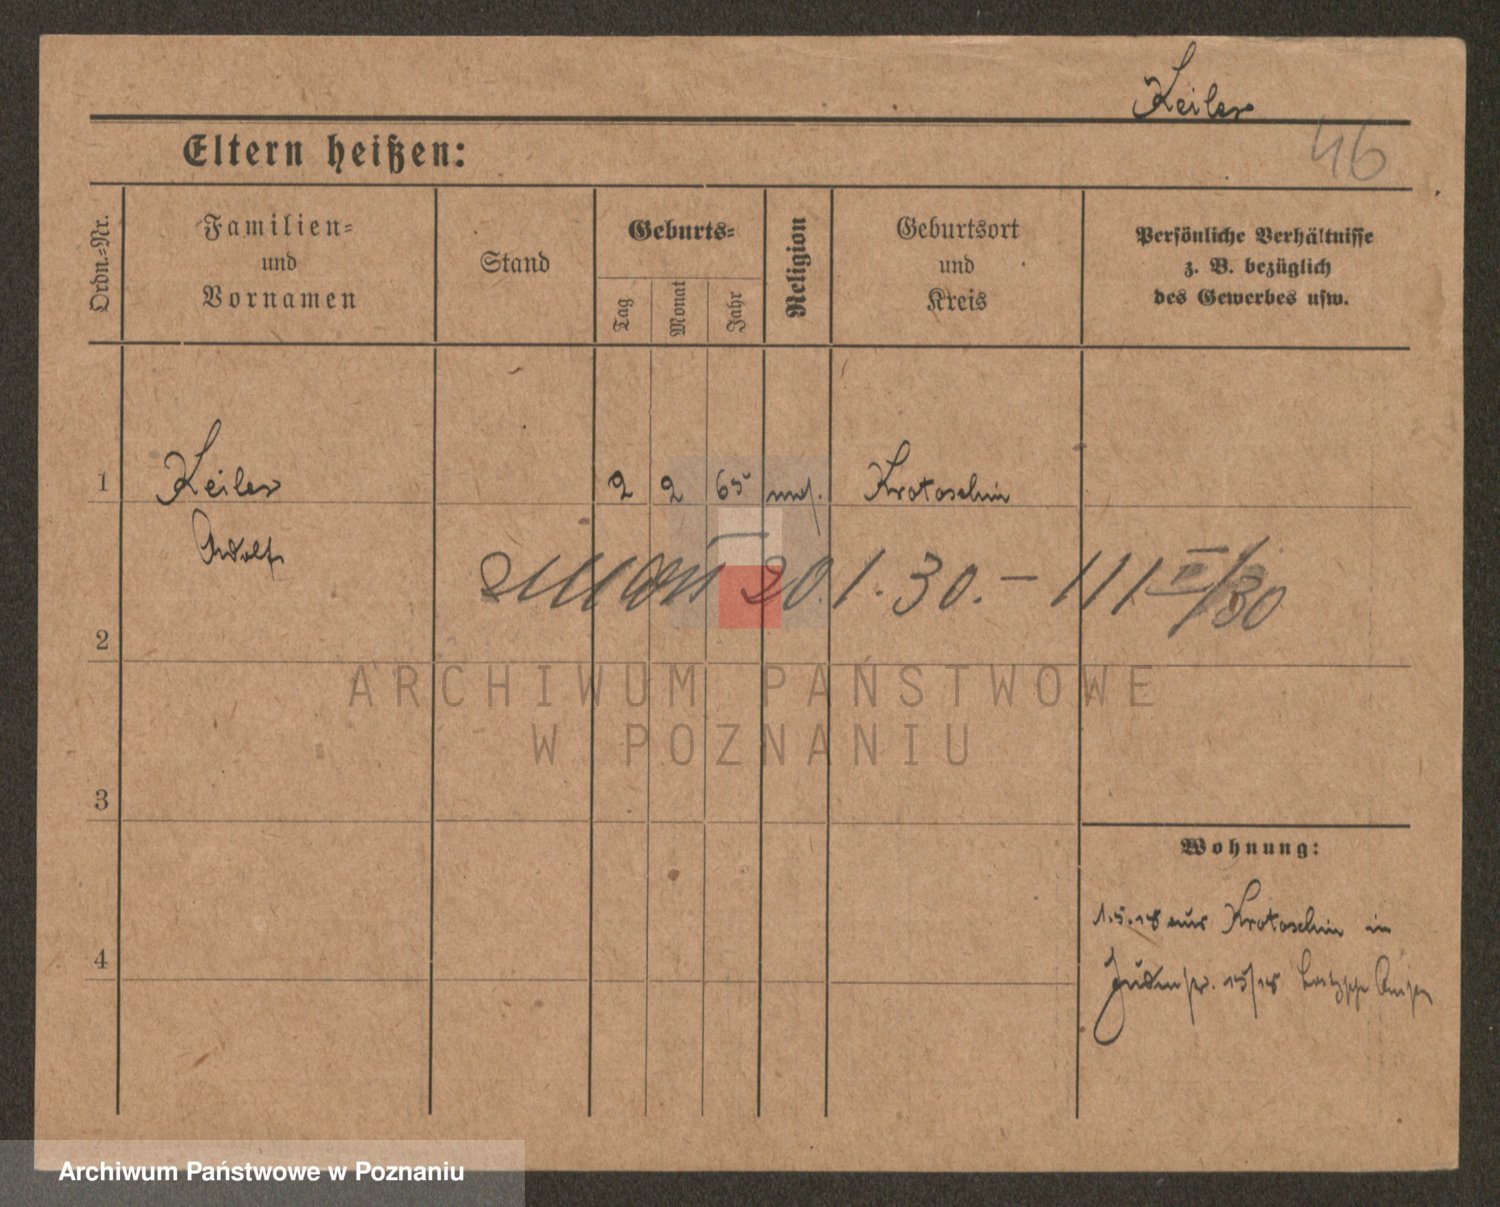 Keiler
46
Eltern heißen:
Ordn.=Nr.
Familien=
und
Vornamen
Stand
Geburts=
Tag
Monat
Jahr
Religion
Geburtsort
und
Kreis
Persönliche Verhältnisse
z. B. bezüglich
des Gewerbes usw.
1 Keiler 2 2 65 Krotoschin
Adolf
20.1.30. – 111 /30
2
3
4
Wohnung:
1.5.18 aus Krotoschin in
Judenstr. 15/18
ARCHIWUM PAŃSTWOWE
W POZNANIU
Archiwum Państwowe w Poznaniu